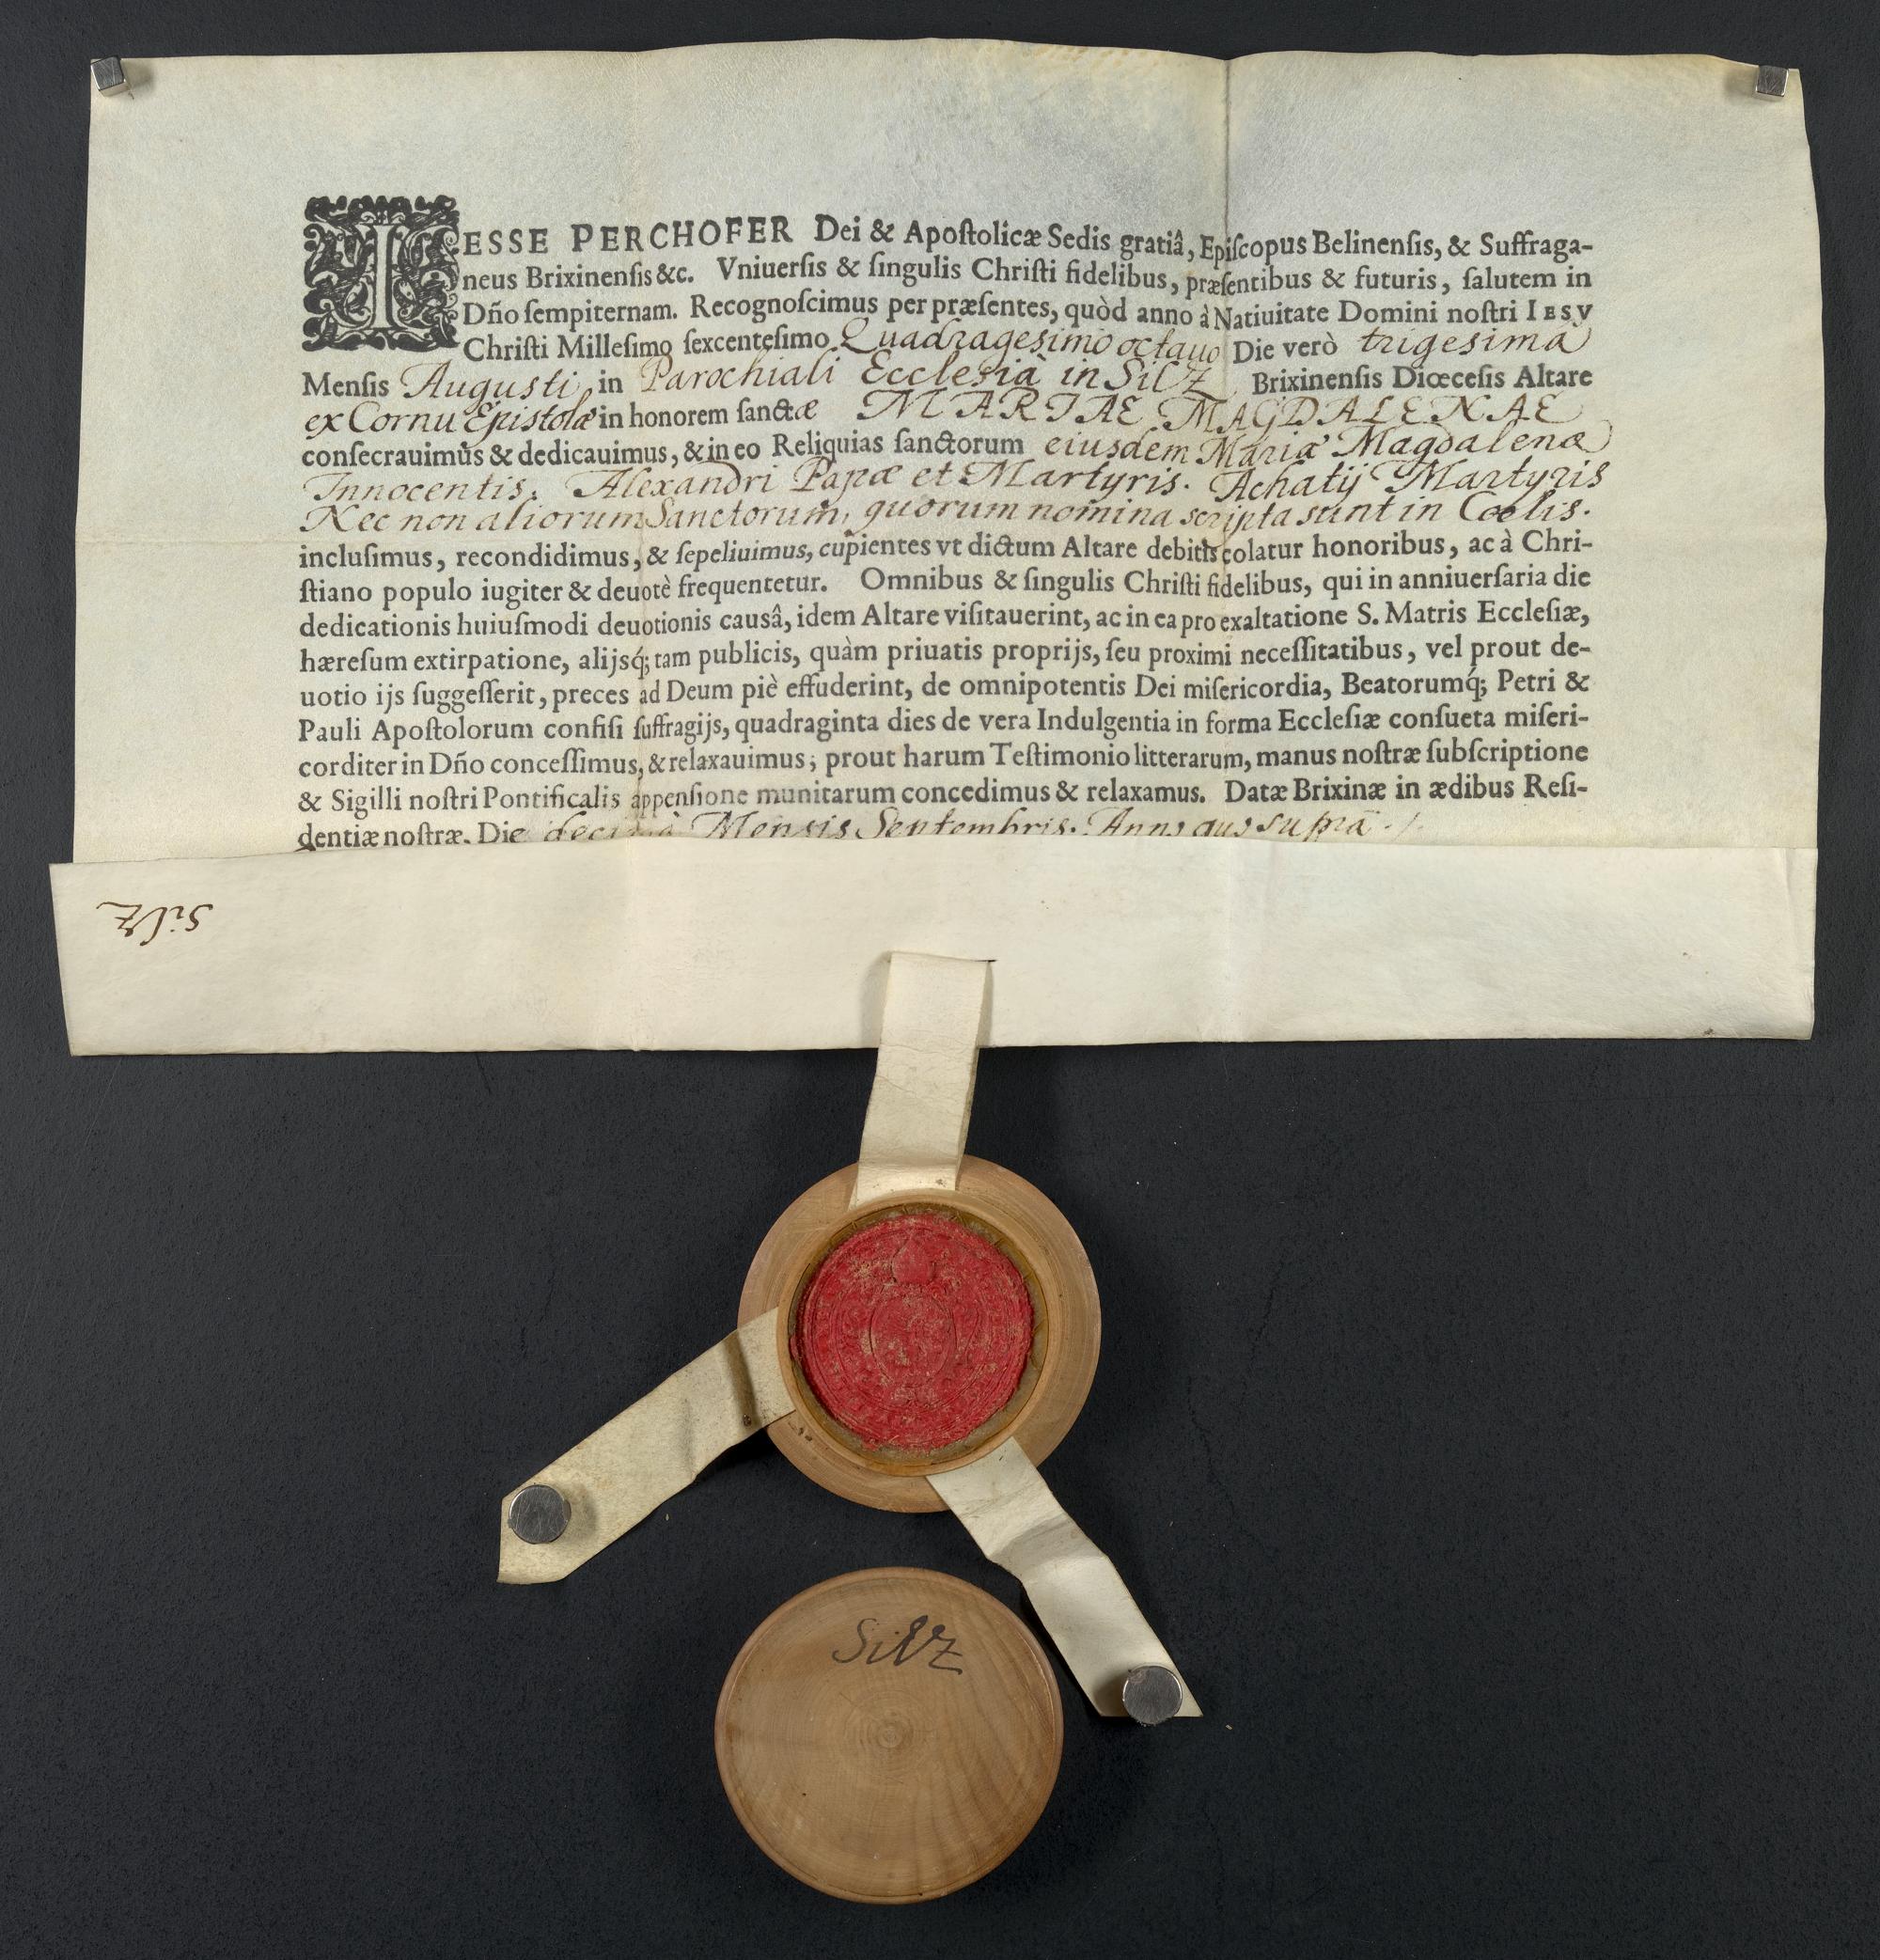 IESSE PERCHOFER Dei & Apoſtolicæ Sedis gratiâ, Epiſcopus Belinenſis, & Suffraga-
neus Brixinenſis &c. Vniuerſis & ſingulis Chriſti fidelibus, præſentibus & futuris, ſalutem in
Dño ſempiternam. Recognoſcimus per præſentes, quòd anno à Natiuitate Domini noſtri IESV
Chriſti Milleſimo ſexcenteſimo Quadragesimo octauo Die verò trigesima
Menſis Augusti, in Parochiali Ecclesia in Silz Brixinenſis Diœceſis Altare
ex Cornu Epistolæ in honorem ſanctæ MARIAE MAGDALENAE
conſecrauimus & dedicauimus, & in eo Reliquias ſanctorum eiusdem Mariæ Magdalenæ
Innocentis. Alexandri Papæ et Martyris. Achatij Martyris
Nec non aliorum Sanctorum, quorum nomina scripta sunt in Cœlis.
incluſimus, recondidimus, & ſepeliuimus, cupientes vt dictum Altare debitis colatur honoribus, ac à Chri-
ſtiano populo iugiter & deuotè frequentetur. Omnibus & ſingulis Chriſti fidelibus, qui in anniuerſaria die
dedicationis huiuſmodi deuotionis causâ, idem Altare viſitauerint, ac in ea pro exaltatione S. Matris Eccleſiæ,
hæreſum extirpatione, alijsq́; tam publicis, quàm priuatis proprijs, ſeu proximi neceſſitatibus, vel prout de-
uotio ijs ſuggeſſerit, preces ad Deum piè effuderint, de omnipotentis Dei miſericordia, Beatorumq́; Petri &
Pauli Apoſtolorum confiſi ſuffragijs, quadraginta dies de vera Indulgentia in forma Eccleſiæ conſueta miſeri-
corditer in Dño conceſſimus, & relaxauimus; prout harum Teſtimonio litterarum, manus noſtræ ſubſcriptione
& Sigilli noſtri Pontificalis appenſione munitarum concedimus & relaxamus. Datæ Brixinæ in ædibus Reſi-
dentiæ noſtræ. Die decima Mensis Septembris. Anno quo supra ./.
Silz
Silz